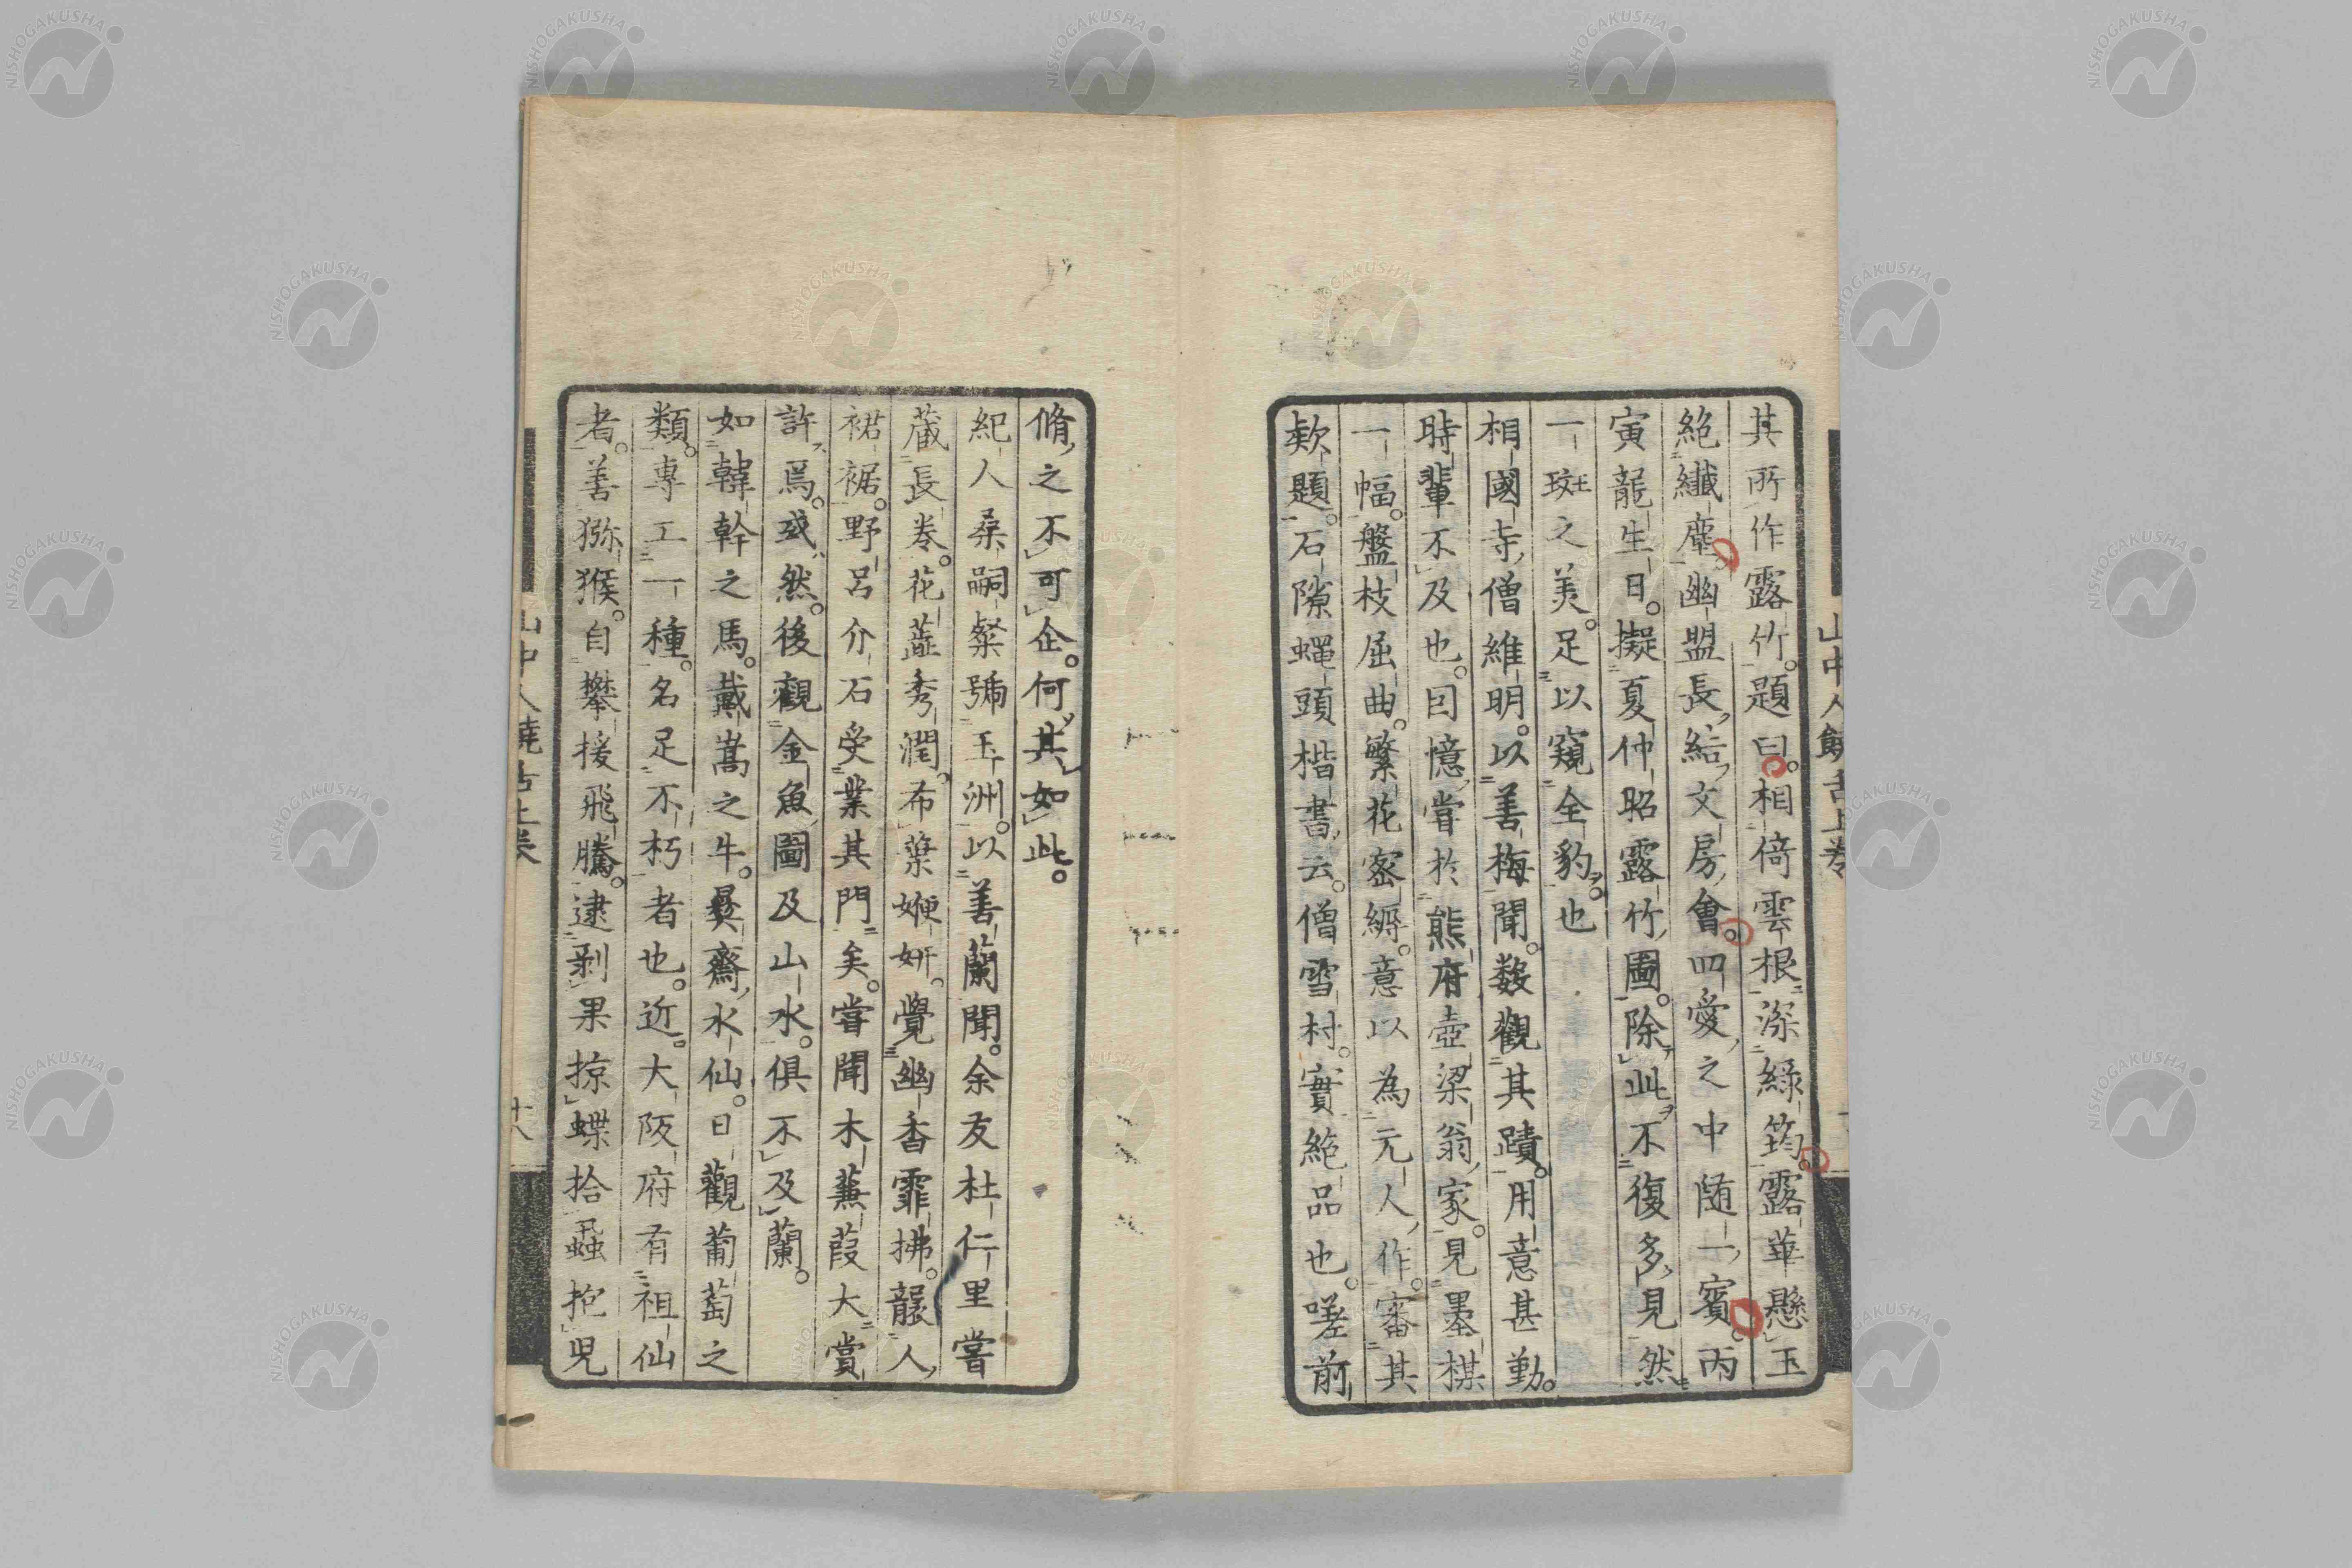 其所作露竹。題曰。相倚雲根深緑筠。露華懸玉
絶纖塵。幽盟長結文房會。四愛之中随一賓。丙
寅龍生日。擬夏仲昭露竹圖。除此不復多見。然
一斑之美。足以窺全豹。也
相國寺僧維明。以善梅聞。數觀其蹟。用意甚勤。
時輩不及也。因憶嘗於熊府壺梁翁家。見墨楳
一幅。盤枝屈曲。繁花密縟。意以為元人作。審其
欵題。石隙蠅頭楷書云。僧雪村。實絶品也。嗟前
脩之不可企。何其如此。
紀人桑嗣粲號玉洲。以善蘭聞。余友杜仁里嘗
蔵長巻。花蕋秀潤。布葉娩妍。覺幽香霏拂。襲人
裙裾。野呂介石受業其門矣。嘗聞木蒹葭大賞
許焉。或然。後觀金魚圖及山水。俱不及蘭。
如韓幹之馬。戴嵩之牛。彜齋水仙。日觀葡萄之
類。專工一種。名足不朽者也。近。大阪府有祖仙
者。善獼猴。自攀援飛騰。逮剥果掠蝶拾蝨抱児
山中人饒舌上巻
山中人饒舌上巻
十八
NISHOGAKUSHA